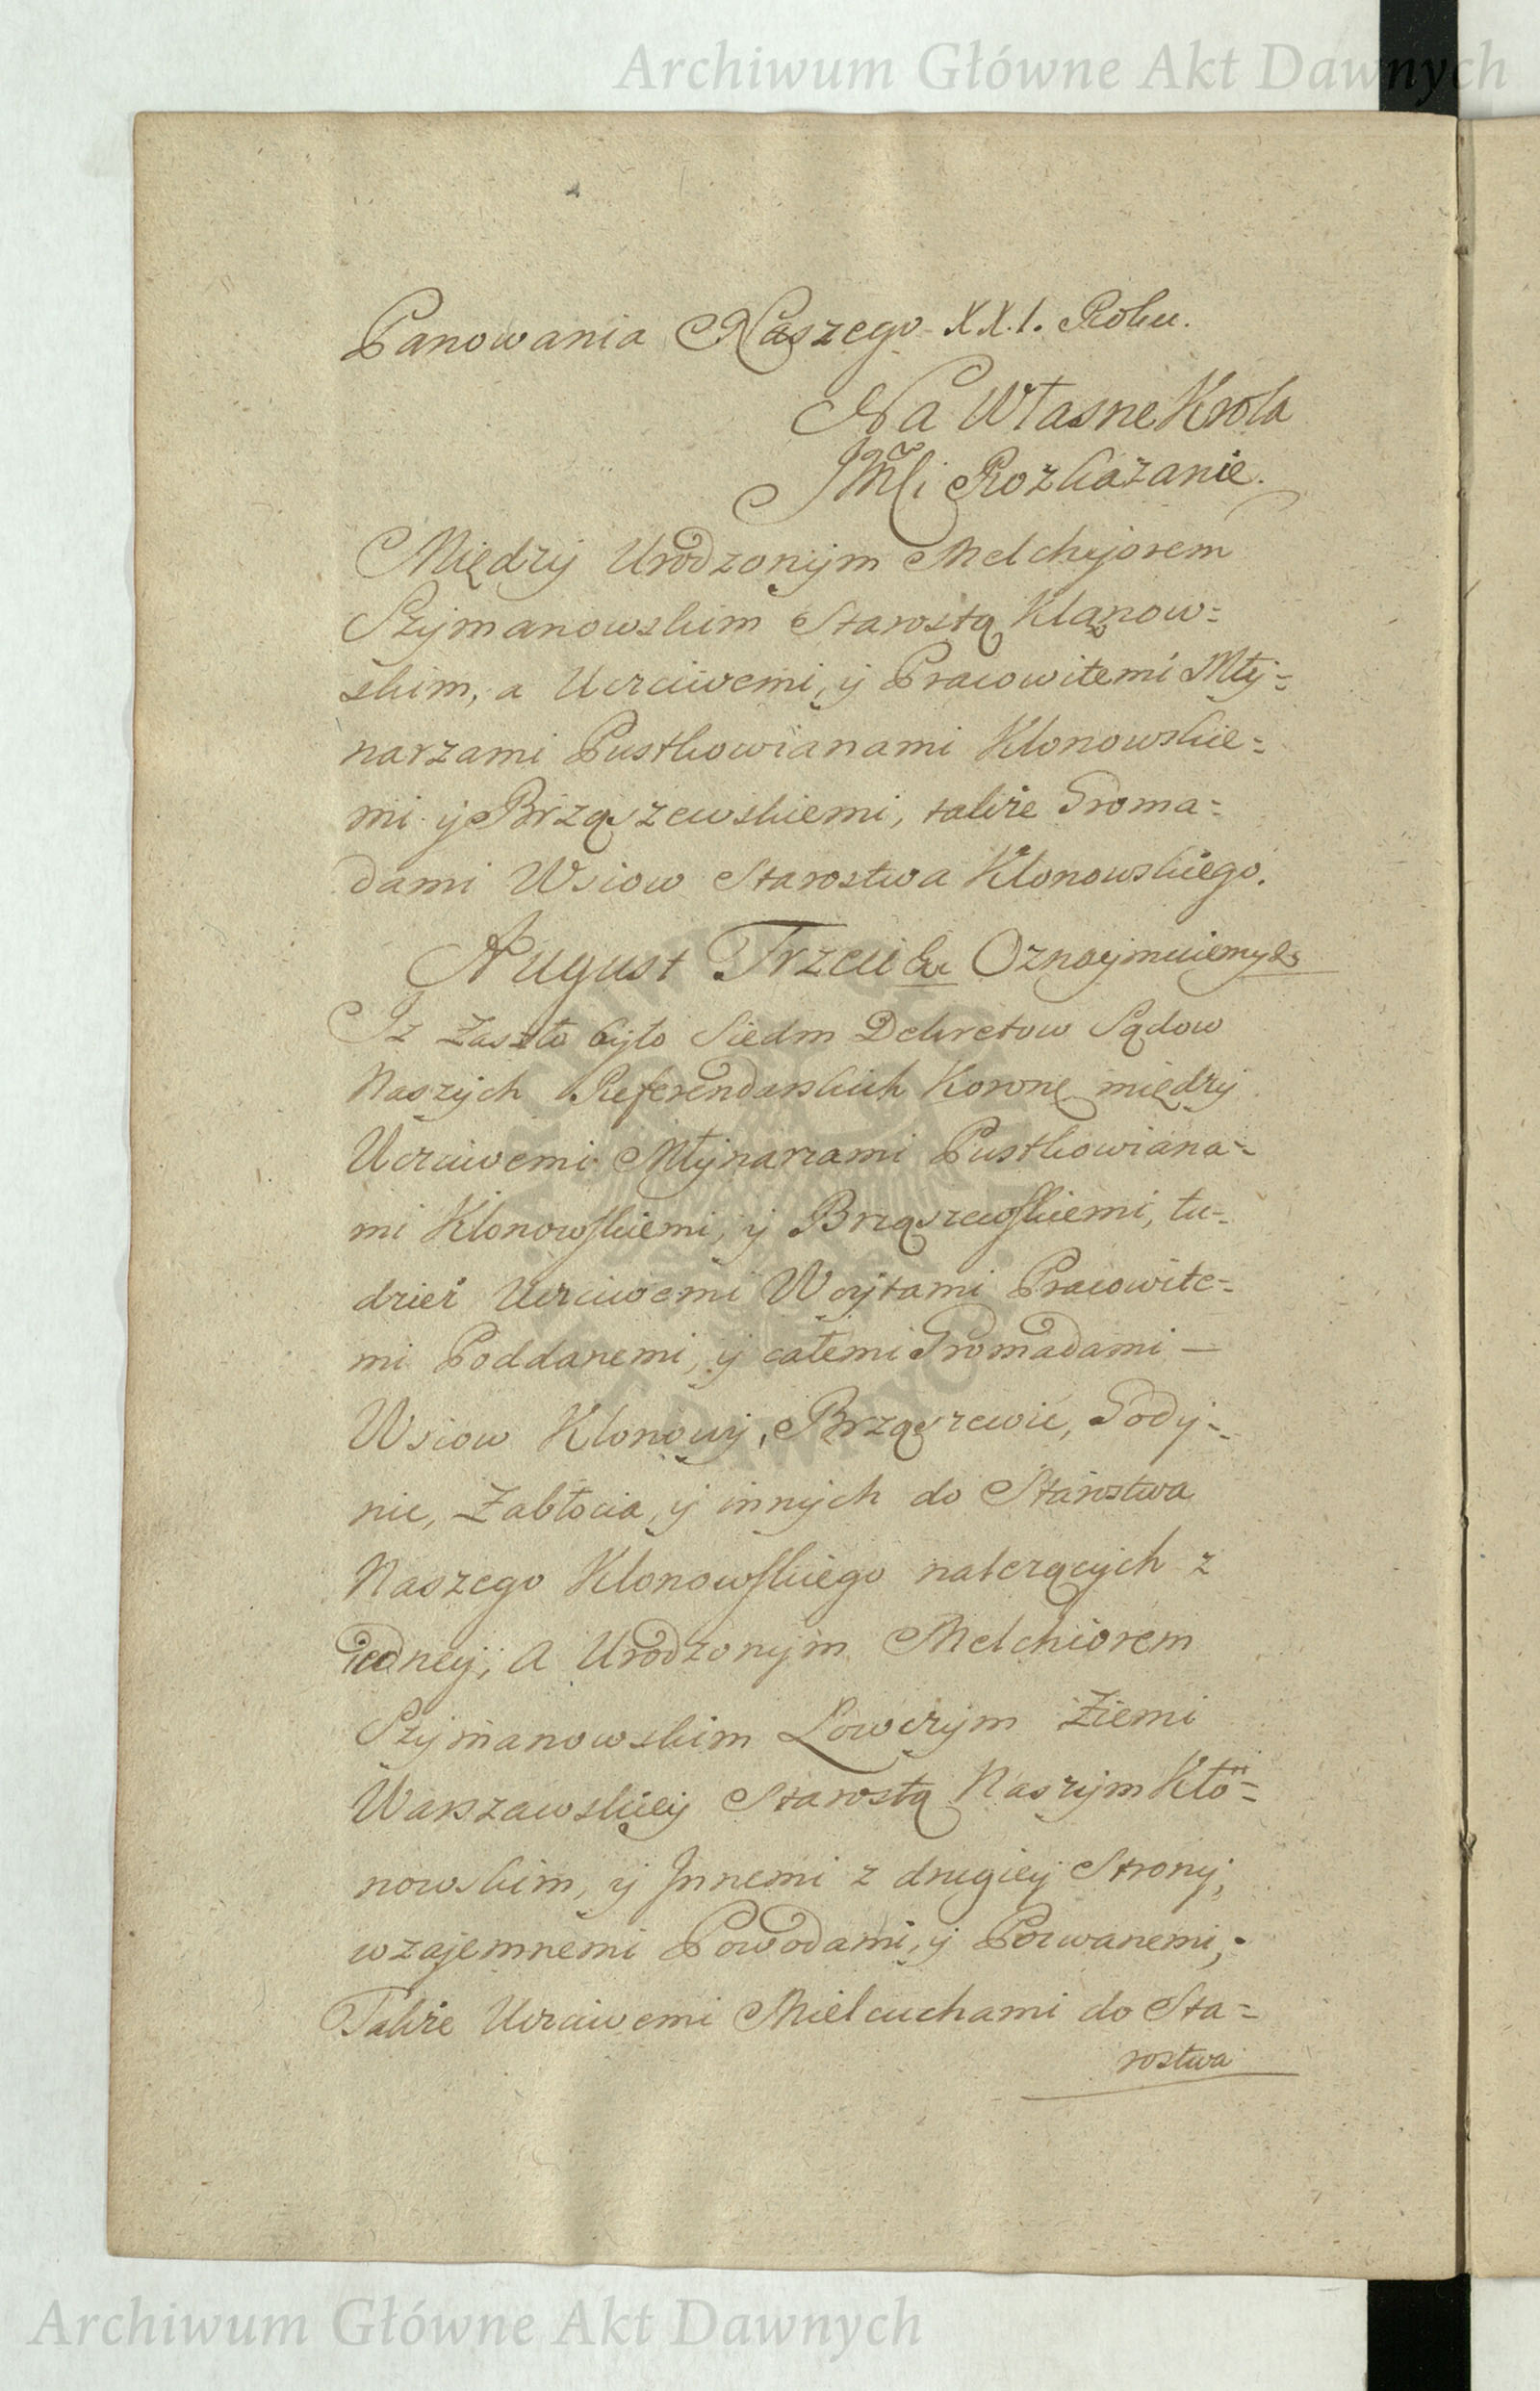 Archiwum Główne Akt Dawnych
Panowania Naszego XX.I. Roku.
Na Własne Krola
JMci Rozkazanie.
Między Urodzonym Melchyorem
Szymanowskim Starostą Klanow=
skim, a Uczciwemi, y Pracowitemi Mły=
narzami Pustkowianami Klonowskie=
mi y Brząszewskiemi, także Groma=
dami Wsiow Starostwa Klonowskiego.
August Trzeci &c Oznaymuiemy &c
Iż Zaszło było Siedm Dekretow Sądow
Naszych Referendarskich Koronę między
Uczciwemi Młynarzami Pustkowiana=
mi Klonowskiemi, y Brząszewskiemi, tu=
dzież Uczciwemi Woytami Pracowite=
mi Poddanemi, y całemi Gromadami —
Wsiow Klonowy, Brząszewic, Gody=
nic, Zabłocia, y innych do Starostwa
Naszego Klonowskiego należących z
iedney; A Urodzonym Melchiorem
Szymanowskim Łowczym Ziemi
Warszawskiey Starostą Naszym Kło=
nowskim, y Innemi z drugiey Strony,
wzajemnemi Powodami, y Pozwanemi,
Także Uczciwemi Mielcuchami do Sta=
rostwa
Archiwum Główne Akt Dawnych